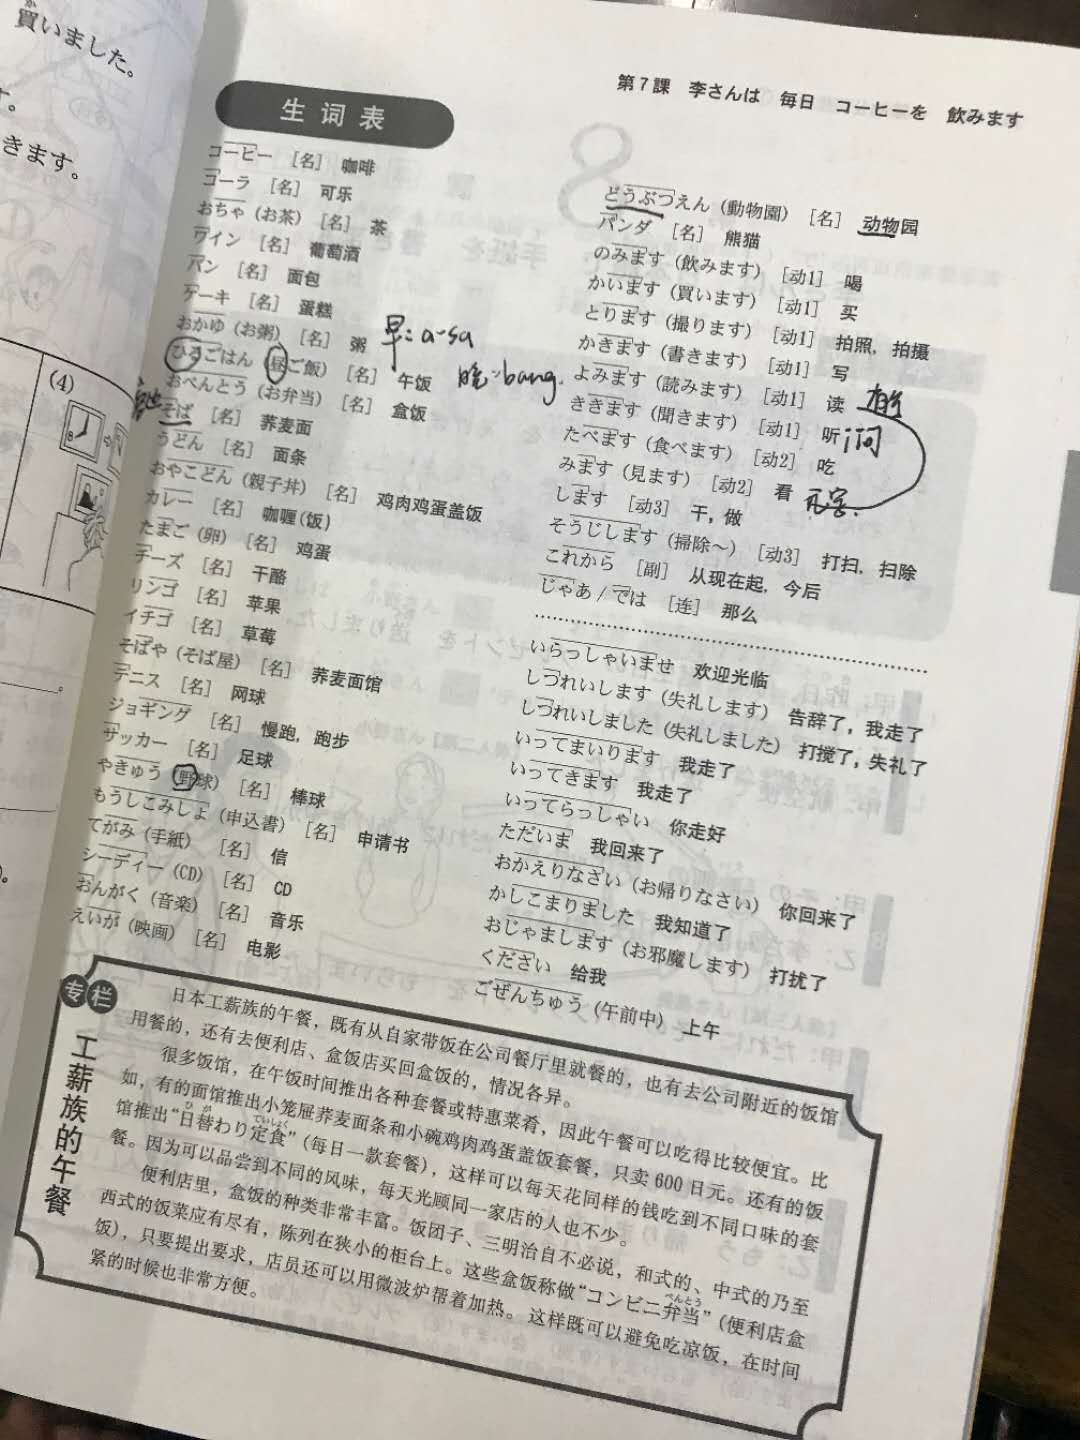 買いました。
す。
きます。
(4)
第7課 李さんは 毎日 コーヒーを 飲みます
生词表
コーヒー [名] 咖啡
コーラ [名] 可乐
おちゃ(お茶) [名] 茶
ワイン [名] 葡萄酒
パン [名] 面包
ケーキ [名] 蛋糕
おかゆ(お粥) [名] 粥 早:a-sa
ひるごはん(昼ご飯) [名] 午饭 晚:bang.
おべんとう(お弁当) [名] 盒饭
そば [名] 荞麦面
うどん [名] 面条
おやこどん(親子丼) [名] 鸡肉鸡蛋盖饭
カレー [名] 咖喱(饭)
たまご(卵) [名] 鸡蛋
チーズ [名] 干酪
リンゴ [名] 苹果
イチゴ [名] 草莓
そばや(そば屋) [名] 荞麦面馆
テニス [名] 网球
ジョギング [名] 慢跑，跑步
サッカー [名] 足球
やきゅう(野球) [名] 棒球
もうしこみしょ(申込書) [名] 申请书
てがみ(手紙) [名] 信
シーディー(CD) [名] CD
おんがく(音楽) [名] 音乐
えいが(映画) [名] 电影
どうぶつえん(動物園) [名] 动物园
パンダ [名] 熊猫
のみます(飲みます) [动1] 喝
かいます(買います) [动1] 买
とります(撮ります) [动1] 拍照，拍摄
かきます(書きます) [动1] 写
よみます(読みます) [动1] 读
ききます(聞きます) [动1] 听 问
たべます(食べます) [动2] 吃
みます(見ます) [动2] 看
します [动3] 干，做
そうじします(掃除～) [动3] 打扫，扫除
これから [副] 从现在起，今后
じゃあ/では [连] 那么
いらっしゃいませ 欢迎光临
しつれいします(失礼します) 告辞了，我走了
しつれいしました(失礼しました) 打搅了，失礼了
いってまいります 我走了
いってきます 我走了
いってらっしゃい 你走好
ただいま 我回来了
おかえりなさい(お帰りなさい) 你回来了
かしこまりました 我知道了
おじゃまします(お邪魔します) 打扰了
ください 给我
ごぜんちゅう(午前中) 上午
专栏
工薪族的午餐
日本工薪族的午餐，既有从自家带饭在公司餐厅里就餐的，也有去公司附近的饭馆
用餐的，还有去便利店、盒饭店买回盒饭的，情况各异。
很多饭馆，在午饭时间推出各种套餐或特惠菜肴，因此午餐可以吃得比较便宜。比
如，有的面馆推出小笼屉荞麦面条和小碗鸡肉鸡蛋盖饭套餐，只卖600日元。还有的饭
馆推出“日替わり定食”(每日一款套餐)，这样可以每天花同样的钱吃到不同口味的套
餐。因为可以品尝到不同的风味，每天光顾同一家店的人也不少。
便利店里，盒饭的种类非常丰富。饭团子、三明治自不必说，和式的、中式的乃至
西式的饭菜应有尽有，陈列在狭小的柜台上。这些盒饭称做“コンビニ弁当”(便利店盒
饭)，只要提出要求，店员还可以用微波炉帮着加热。这样既可以避免吃凉饭，在时间
紧的时候也非常方便。